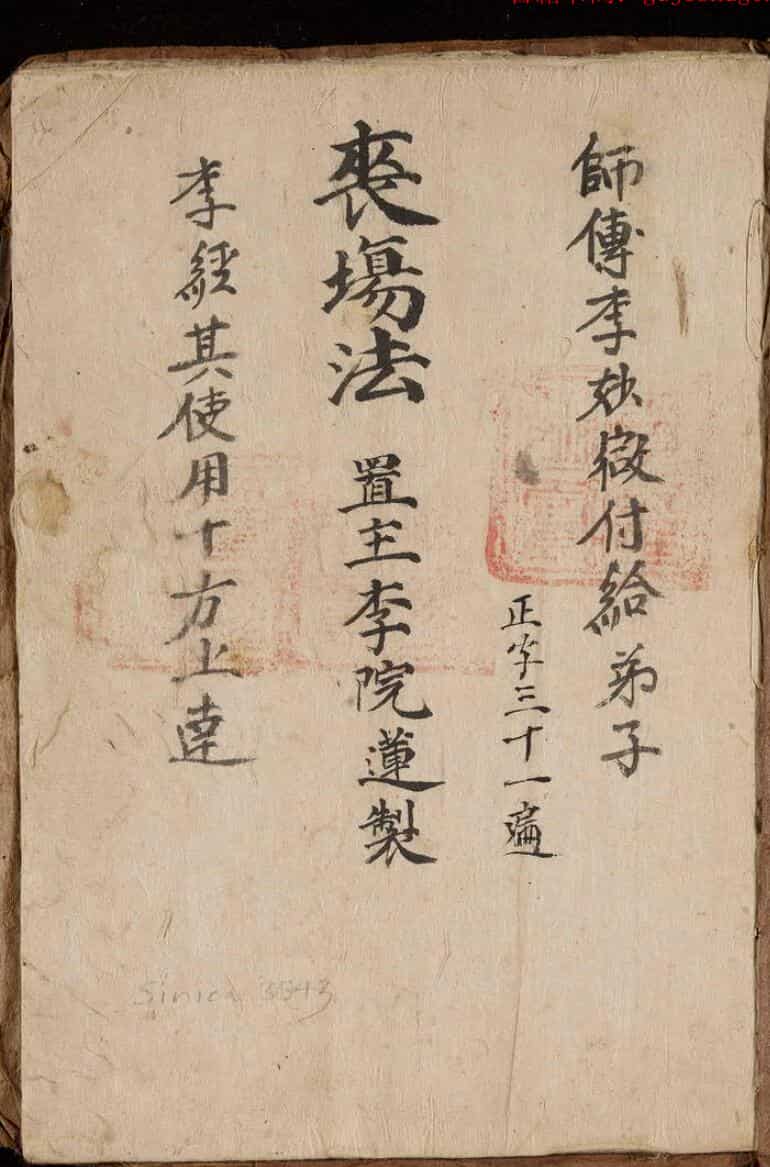 師傳李妙微付給弟子
正字三十一遍
喪場法 置主李院蓮製
李經其使用十方上達
Sinica 3543